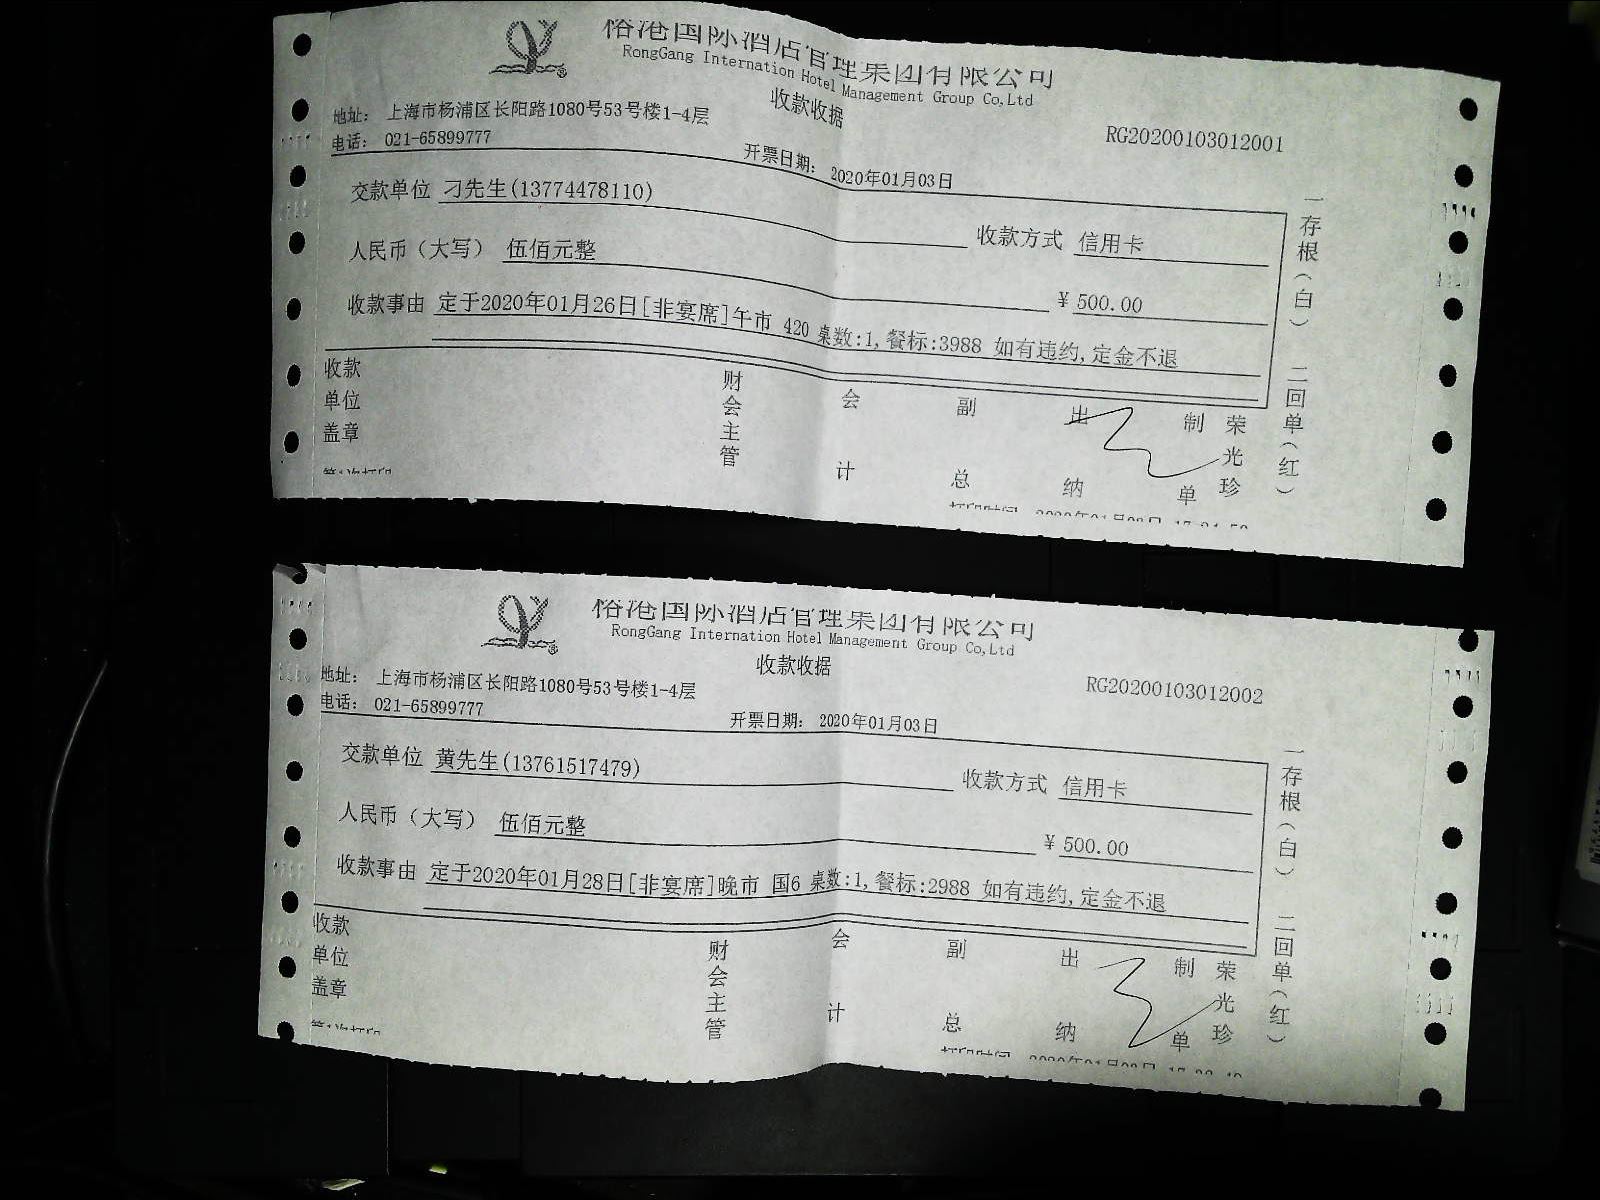 榕港国际酒店管理集团有限公司
RongGang Internation Hotel Management Group Co,Ltd
收款收据
地址： 上海市杨浦区长阳路1080号53号楼1-4层
电话： 021-65899777
RG20200103012001
开票日期： 2020年01月03日
交款单位 刁先生(13774478110)
收款方式 信用卡
人民币（大写） 伍佰元整
￥ 500.00
收款事由 定于2020年01月26日[非宴席]午市 420 桌数:1,餐标:3988 如有违约,定金不退
收款单位盖章
财会主管
会计
副总
出纳
制单
荣光珍
一存根（白） 二回单（红）
第1次打印
榕港国际酒店管理集团有限公司
RongGang Internation Hotel Management Group Co,Ltd
收款收据
地址： 上海市杨浦区长阳路1080号53号楼1-4层
电话： 021-65899777
RG20200103012002
开票日期： 2020年01月03日
交款单位 黄先生(13761517479)
收款方式 信用卡
人民币（大写） 伍佰元整
￥ 500.00
收款事由 定于2020年01月28日[非宴席]晚市 国6 桌数:1,餐标:2988 如有违约,定金不退
收款单位盖章
财会主管
会计
副总
出纳
制单
荣光珍
一存根（白） 二回单（红）
第1次打印